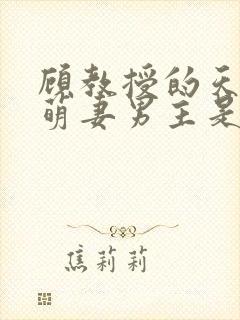 顾教授的天
萌妻男主是
焦莉莉